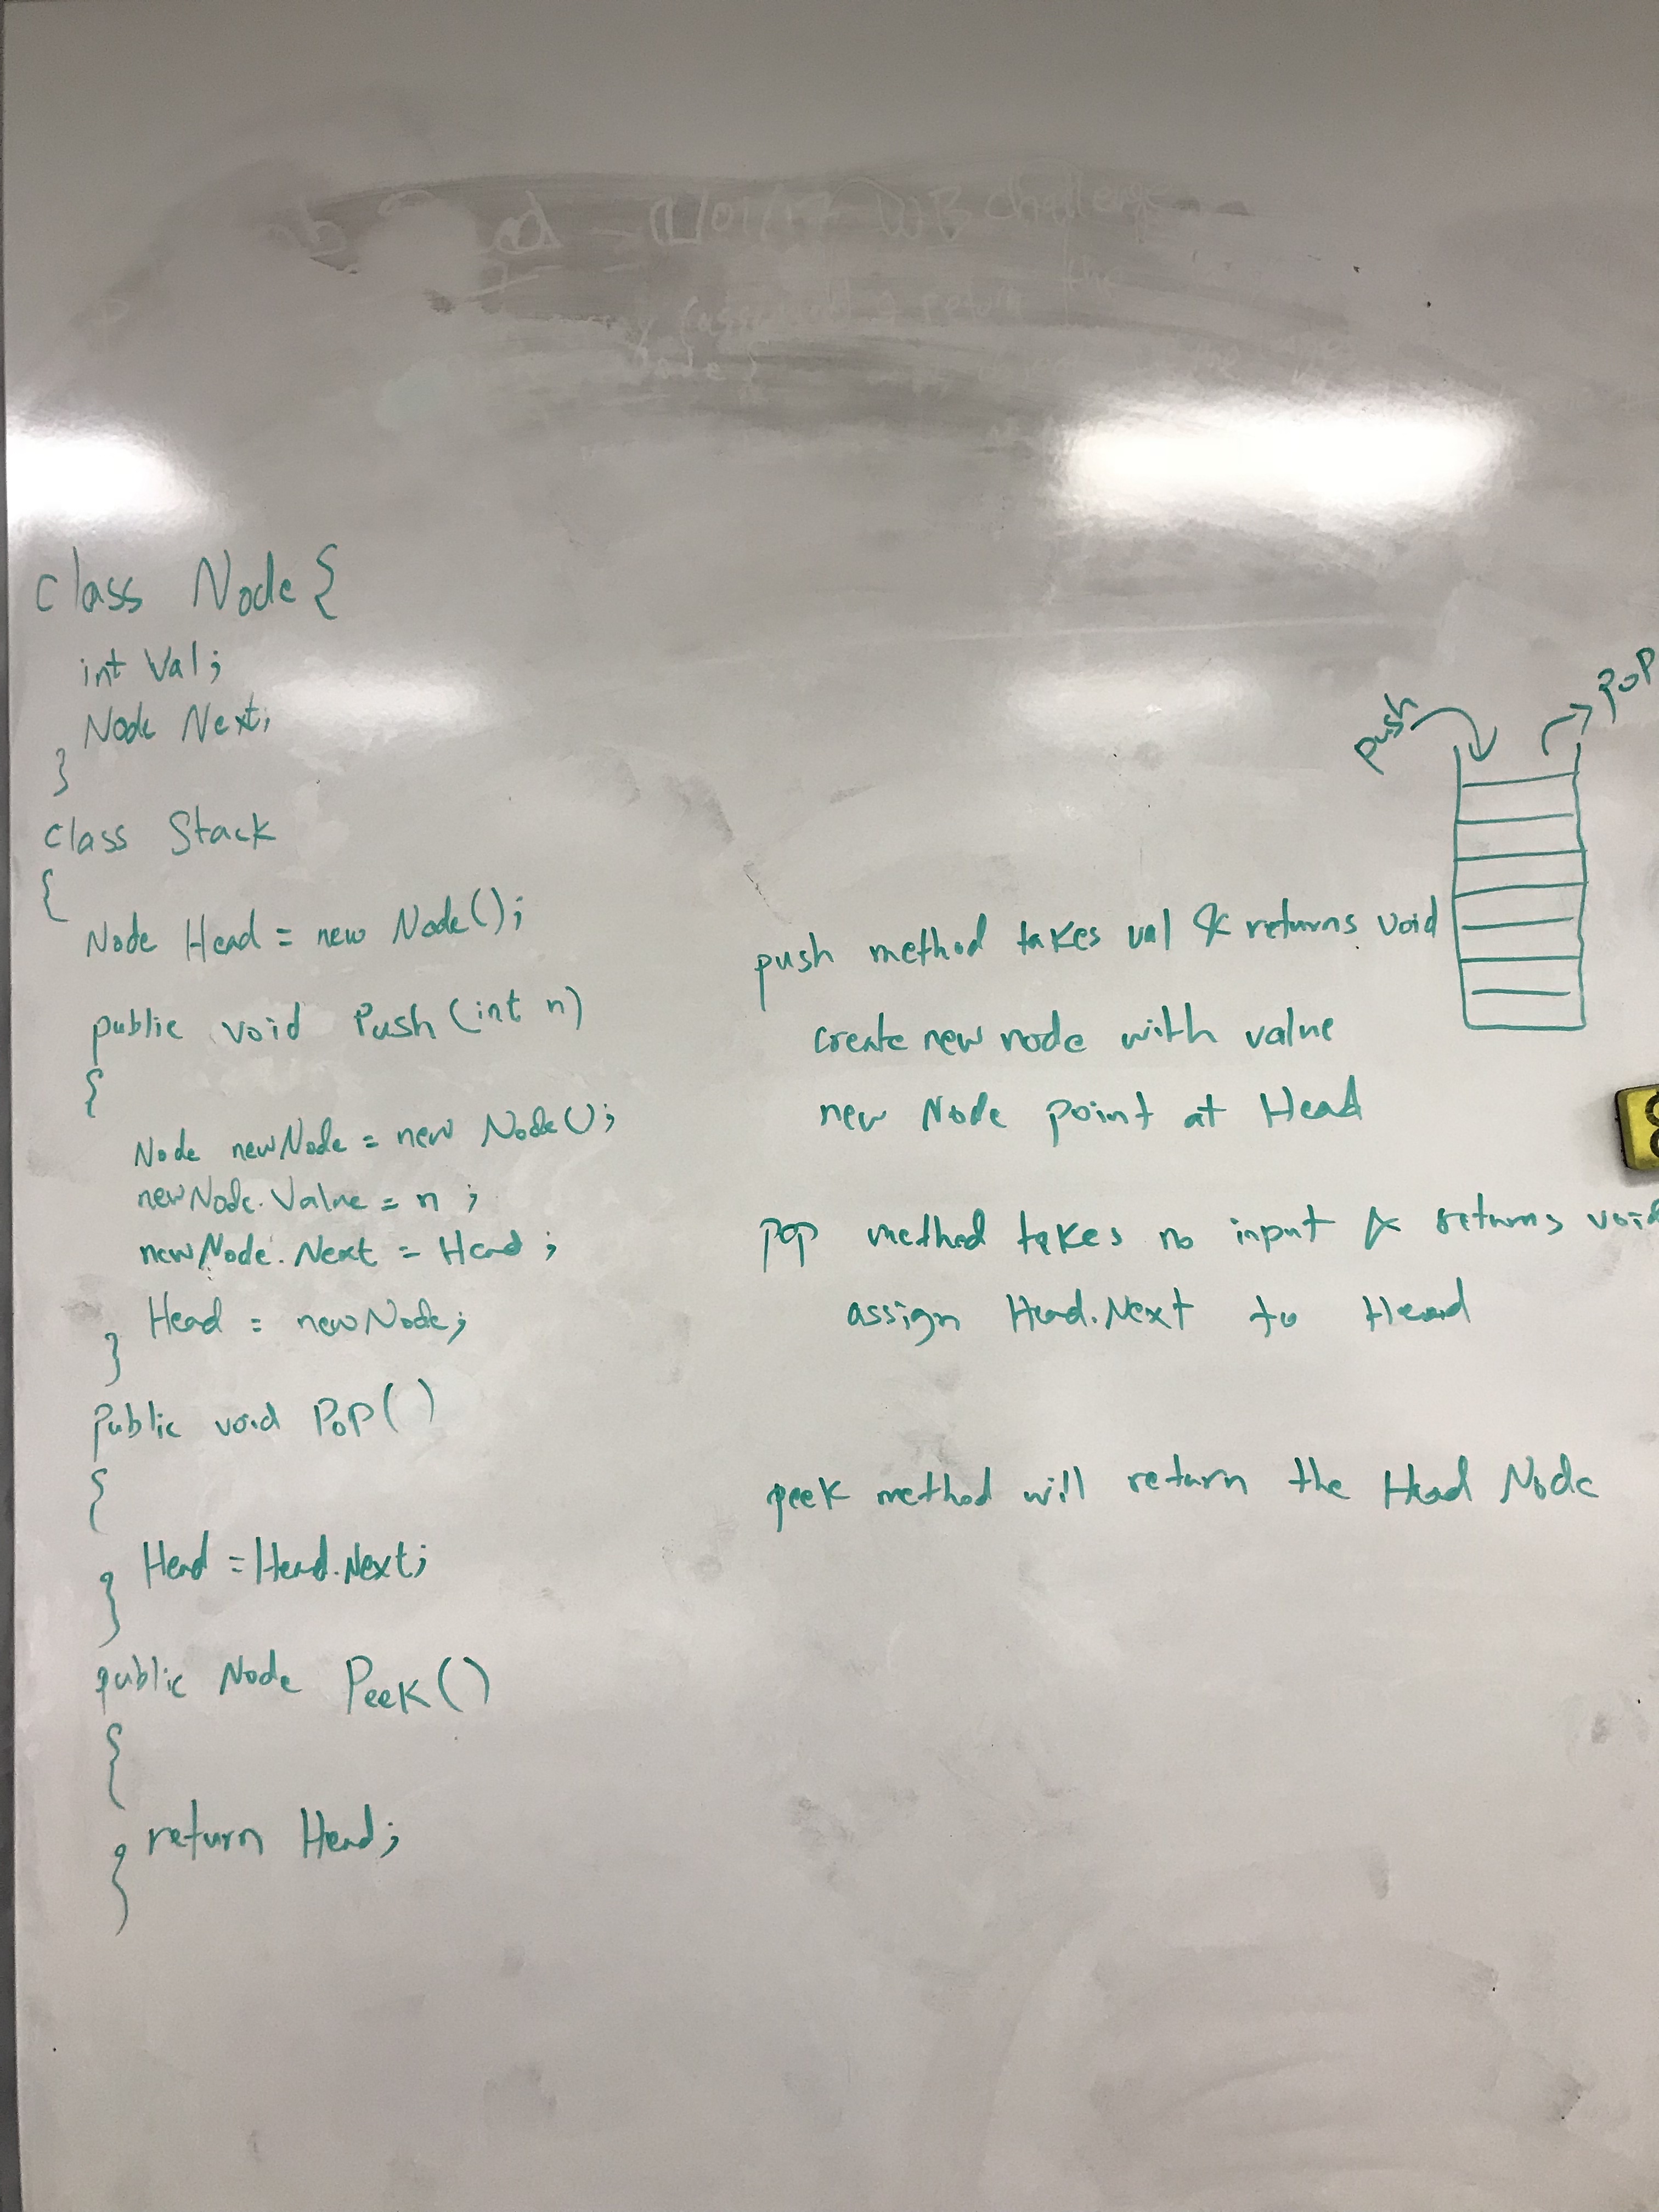 WB challenge
return the
class Node {
int Val;
Node Next;
}
class Stack
{
Node Head = new Node();
public void Push (int n)
{
Node newNode = new Node();
newNode.Value = n ;
newNode.Next = Head ;
Head = newNode;
}
public void PoP()
{
Head = Head.Next;
}
public Node Peek()
{
return Head;
}
push
pop
push method takes val & returns void
create new node with value
new Node point at Head
pop method takes no input & returns void
assign Head.Next to Head
peek method will return the Head Node